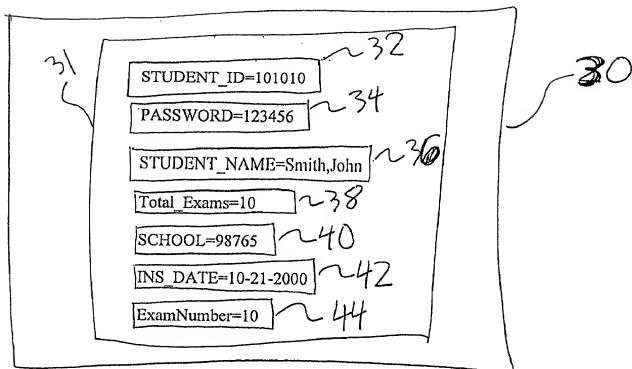 32
31
STUDENT_ID=101010
30
34
PASSWORD=123456
36
STUDENT_NAME=Smith,John
Total_Exams=10
38
SCHOOL=98765
40
INS_DATE=10-21-2000
42
ExamNumber=10
44